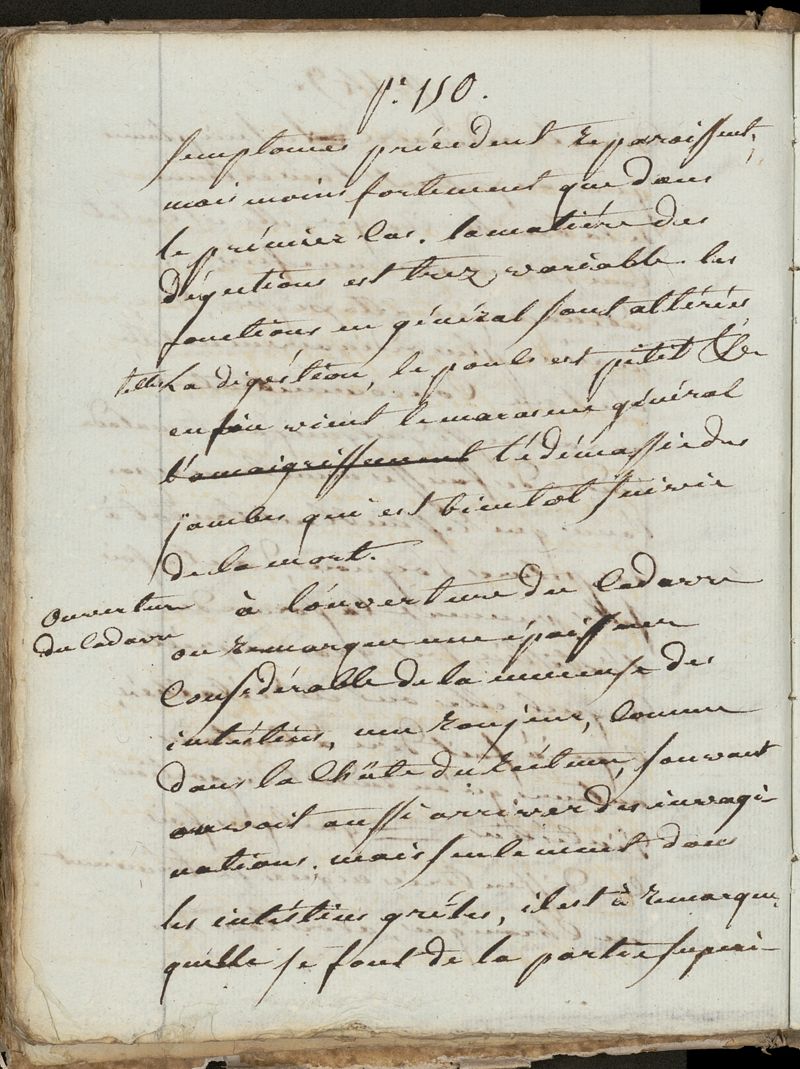 p.e 150.
semptomes précédent reparoissent,
mais moins fortement que dans
le prémier cas. la matiére des
déjections est trez variable. les
fonctions en général sont altérées
telles la digéstion, le pouls est pétit &c
enfin vient le marasme général
l'amaigrissement l'édémassie des
jambes qui est bientot suivie
de la mort.
Ouverture
du Cadavre
à l'ouverture du Cadavre
on remarque une épaisseur
Considérable de la muceuse des
intéstins, une roujeur, Comme
dans la Chûte du réctum, souvant
on voit aussi arriver des invagi-
nations, mais seulement dans
les intéstins grêles, il est à remarquer
qu'elle se font de la partie superi-